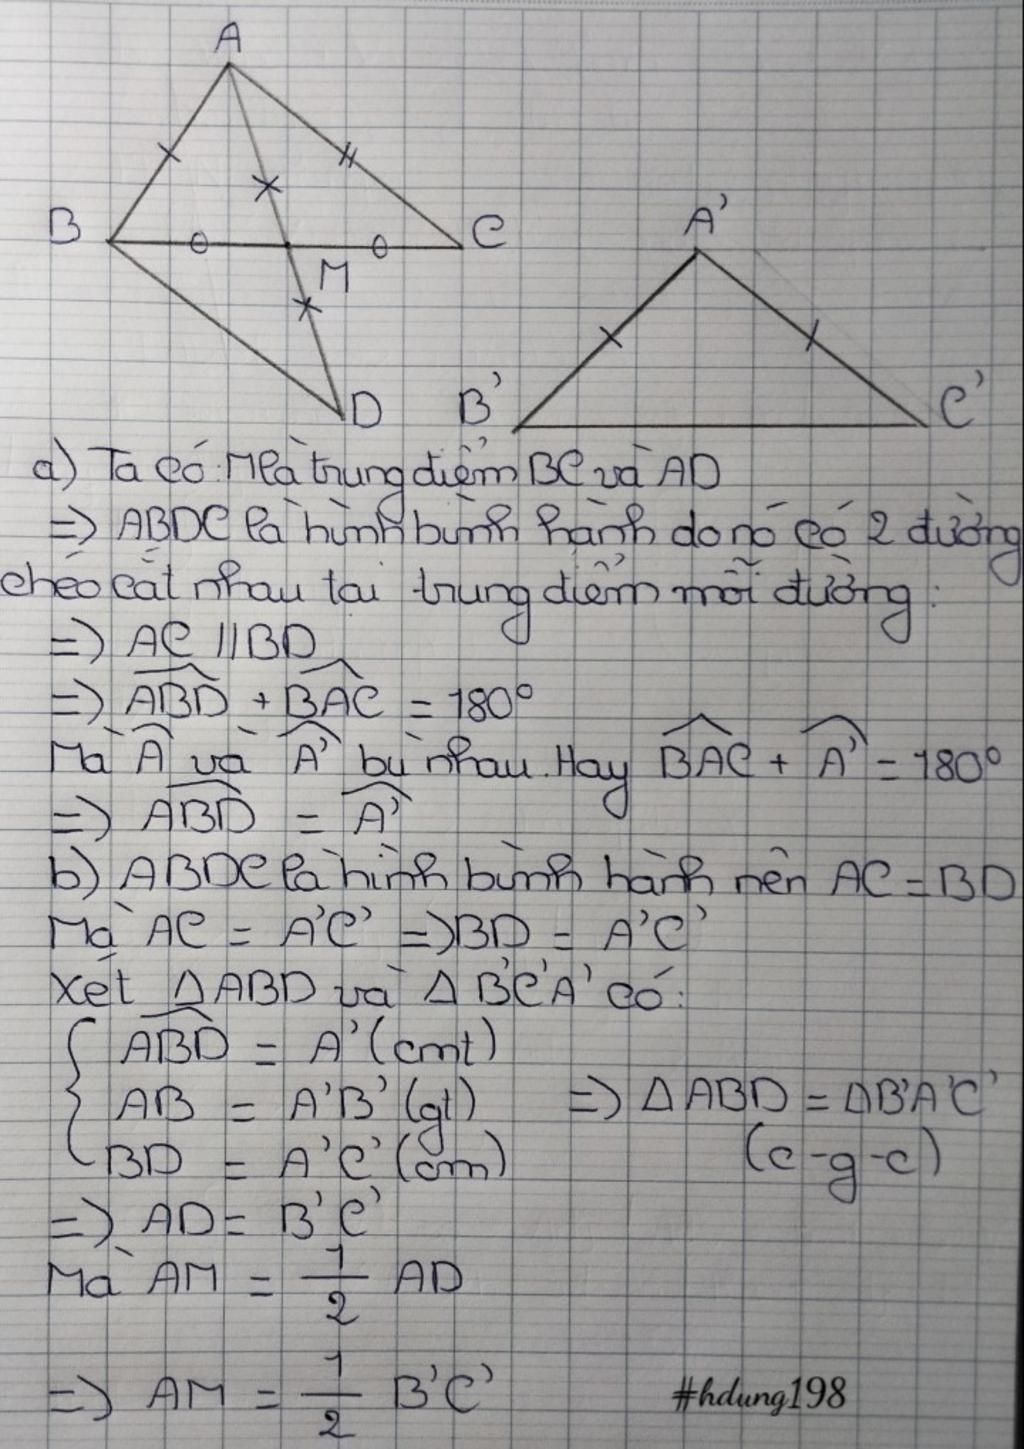 A
B
C
M
D
A'
B'
C'
a) Ta có: M là trung điểm BC và AD
=> ABDC là hình bình hành do nó có 2 đường
chéo cắt nhau tại trung điểm mỗi đường.
=> AC // BD
=> \widehat{ABD} + \widehat{BAC} = 180°
Mà \widehat{A} và \widehat{A'} bù nhau. Hay \widehat{BAC} + \widehat{A'} = 180°
=> \widehat{ABD} = \widehat{A'}
b) ABDC là hình bình hành nên AC = BD
Mà AC = A'C' => BD = A'C'
Xét Δ ABD và Δ B'C'A' có:
\widehat{ABD} = A' (cmt)
AB = A'B' (gt) => Δ ABD = Δ B'A'C'
BD = A'C' (cm) (c-g-c)
=> AD = B'C'
Mà AM = 1/2 AD
=> AM = 1/2 B'C'
#hdung198